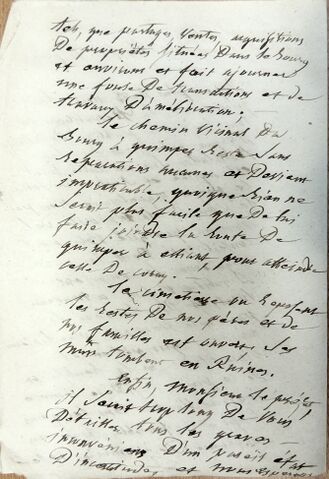 tels, que partages, ventes, acquisitions
De propriétés situées Dans le bourg
et environs et fait ajourner
une foule de transactions et de
travaux D'amélioration.
Le chemin vicinal Du
bourg à quimper reste sans
réparations aucunes et Devient
impraticable, quoique Rien ne
serait plus facile que de lui
faire joindre la route De
quimper à elliant, pour atteindre
celle De coray.
Le cimetière ou reposent
les restes De nos pères et de
nos familles est ouvert, ses
murs tombent en Ruines.
Enfin, Monsieur le préfet,
il serait trop long De vous
Détailler tous les graves
inconvéniens D'un pareil état
D'incertitudes et nous espérons